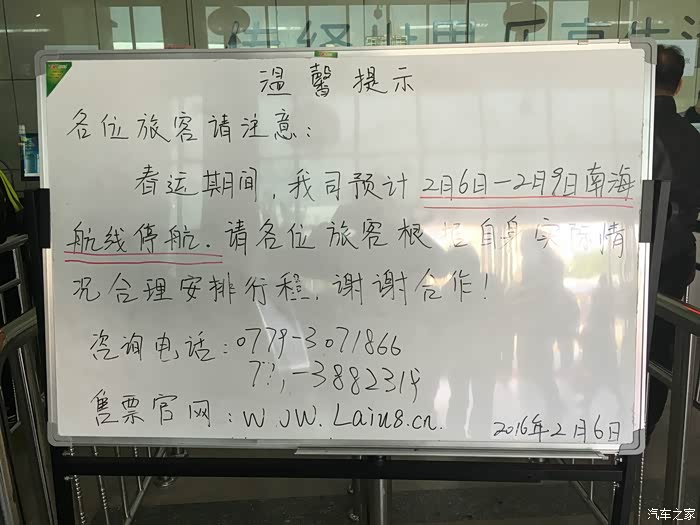 温馨提示
各位旅客请注意：
春运期间，我司预计2月6日－2月9日南海
航线停航．请各位旅客根据自身实际情
况合理安排行程．谢谢合作！
咨询电话：0779-3071866
-3882319
售票官网：W.JW.Laiu8.cn.
2016年2月6日
汽车之家